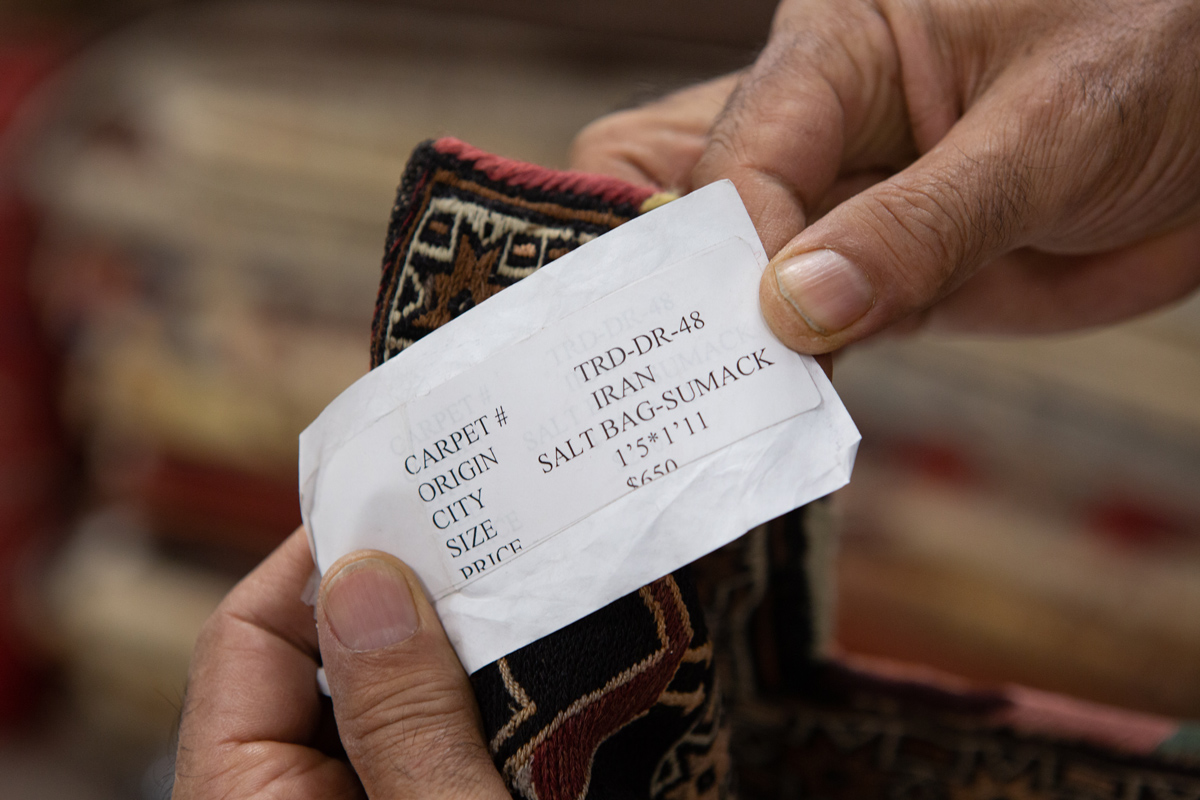 CARPET # TRD-DR-48
ORIGIN IRAN
CITY SALT BAG-SUMACK
SIZE 1'5*1'11
PRICE $650